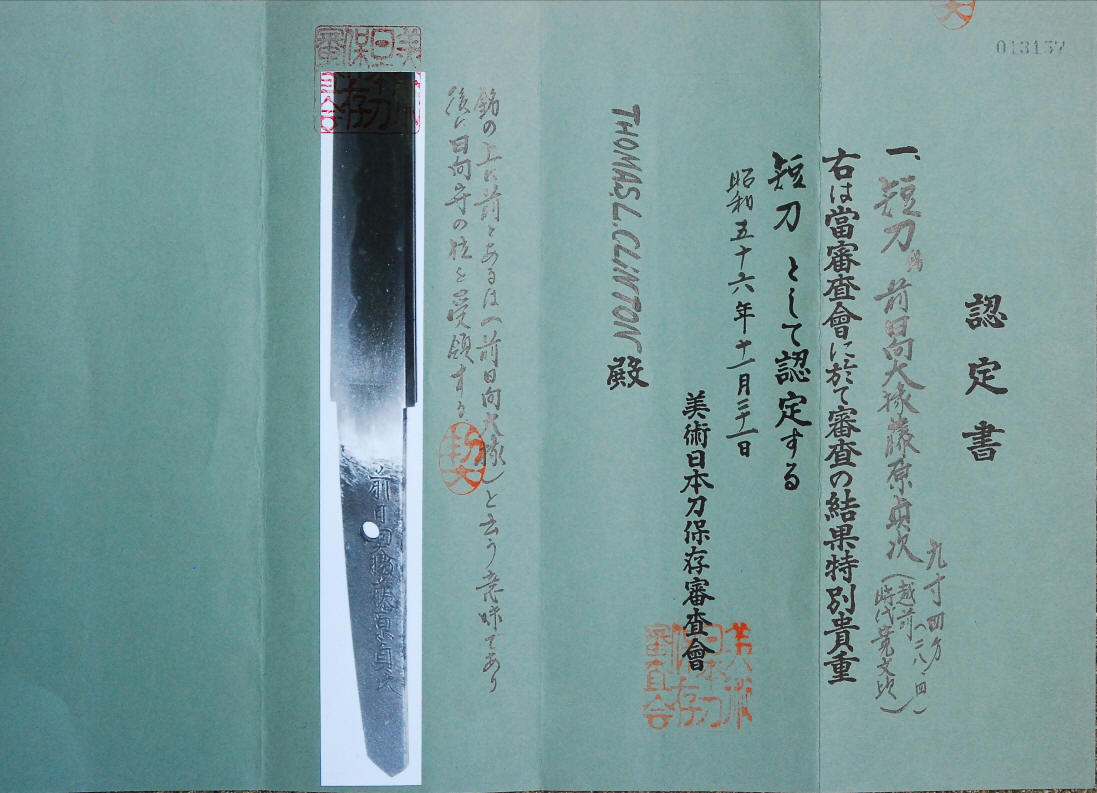 013157
認定書
一、短刀 銘 前日向大掾藤原貞次
九寸四分
(二八・四)
(越前
時代寛文頃)
右は當審査會に於て審査の結果特別貴重
短刀として認定する
昭和五十六年十一月二十二日
美術日本刀保存審査會
THOMAS.L.CLINTON殿
銘の上に前とあるは(前日向大掾)と云う意味であり
後に日向守の位を受領する。
前日向大掾藤原貞次